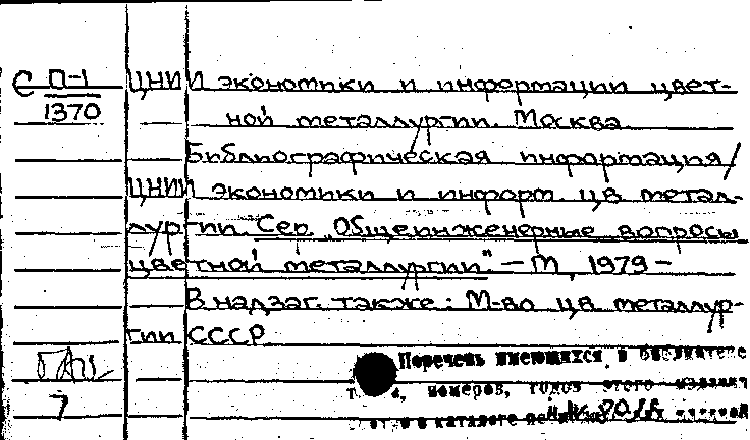 С П-1 ЦНИИ экономики и информации цвет-
1370 ной металлургии. Москва
Библиографическая информация/
ЦНИИ экономики и информ. цв. метал-
лургии. Сер. "Общеинженерные вопросы
цветной металлургии" - М., 1979 -
В надзаг. также: М-во цв. металлур-
гии СССР
Перечень имеющихся в библиотеке
номеров, годов этого издания
в каталоге
7